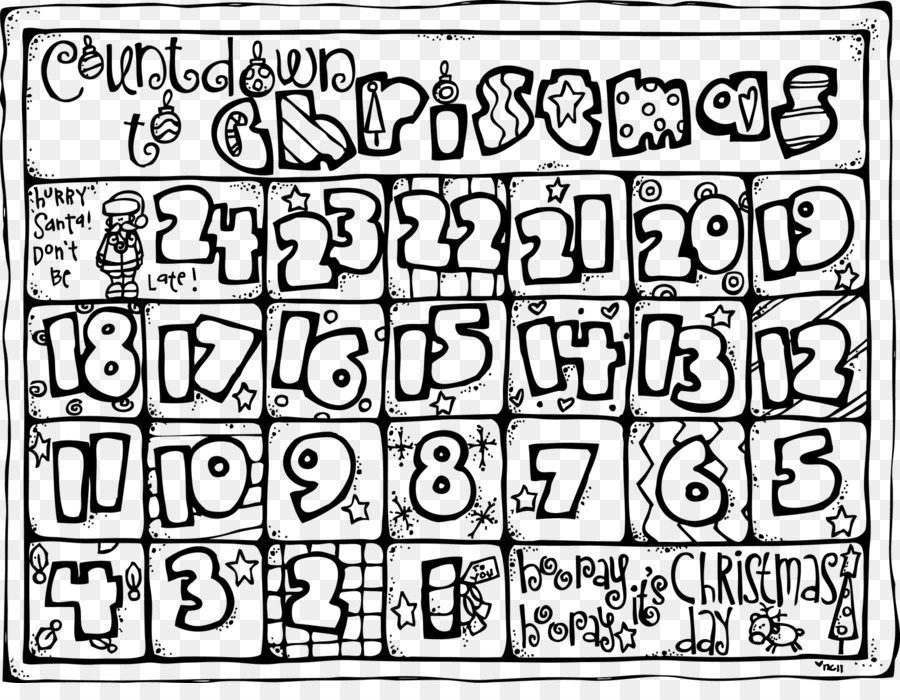 Countdown
to Christmas
hurry Santa! Don't Be Late! 24 23 22 21 20 19
18 17 16 15 14 13 12
11 10 9 8 7 6 5
4 3 2 1 To You hooray hooray it's Christmas day
nc11